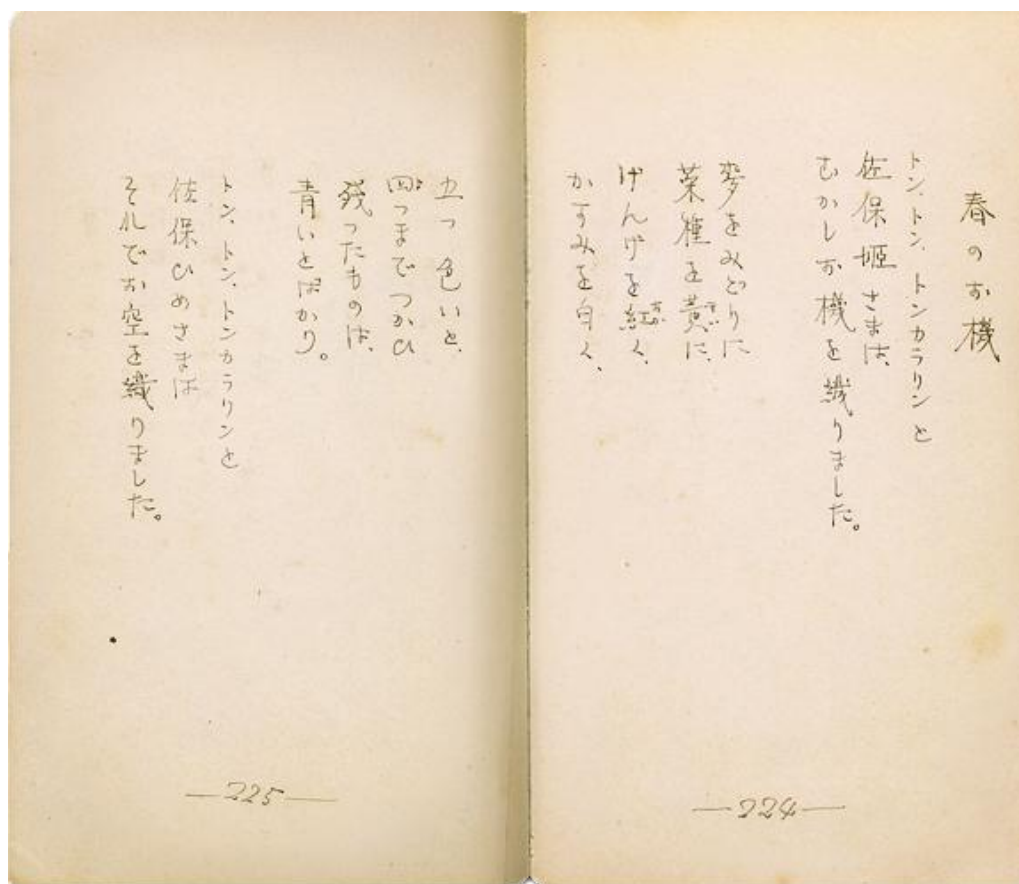 春のお機
トン、トン、トンカラリンと
佐保姫さまは、
むかしお機を織りました。
麥をみどりに
菜種を黄に、
げんげを紅く、
かすみを白く、
―224―
五つ色いと、
四つまでつかひ
残ったものは、
青いとばかり。
トン、トン、トンカラリンと
佐保ひめさまは
それでお空を織りました。
―225―